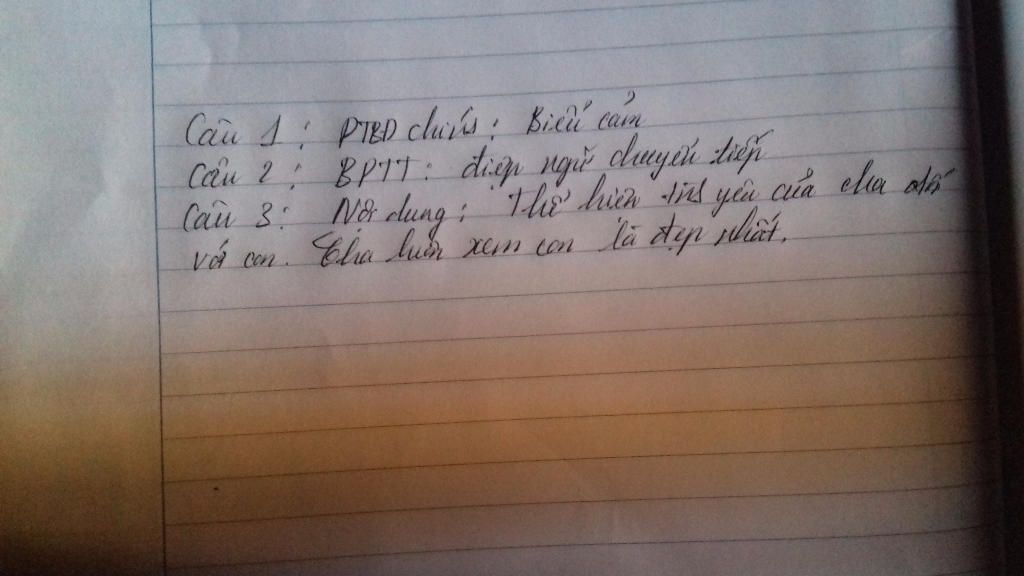 Câu 1 : PTBD chính : Biểu cảm
Câu 2 : BPTT : điệp ngữ chuyển tiếp
Câu 3 : Nội dung : Thể hiện tình yêu của cha đối
với con. Cha luôn xem con là đẹp nhất.